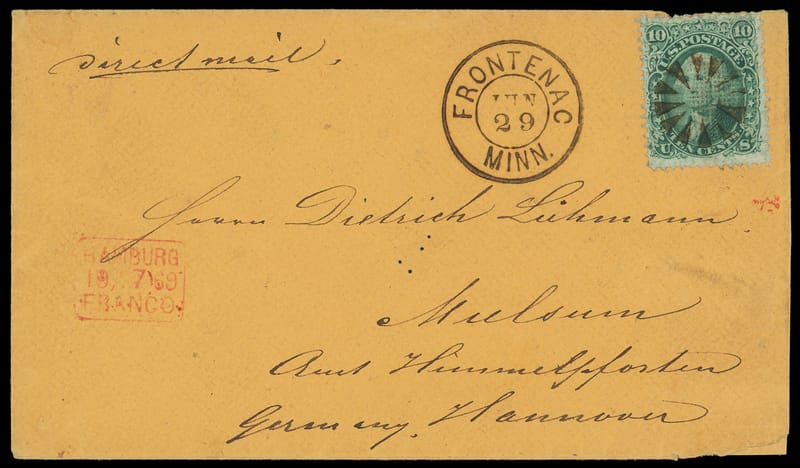 Direct mail.
FRONTENAC
JUN
29
MINN.
10 10
U.S. POSTAGE
TEN CENTS
U S
Herrn Dietrich Lühmann
HAMBURG
19. 7 69
FRANCO.
Mulsum
Amt Himmelpforten
Germany, Hannover